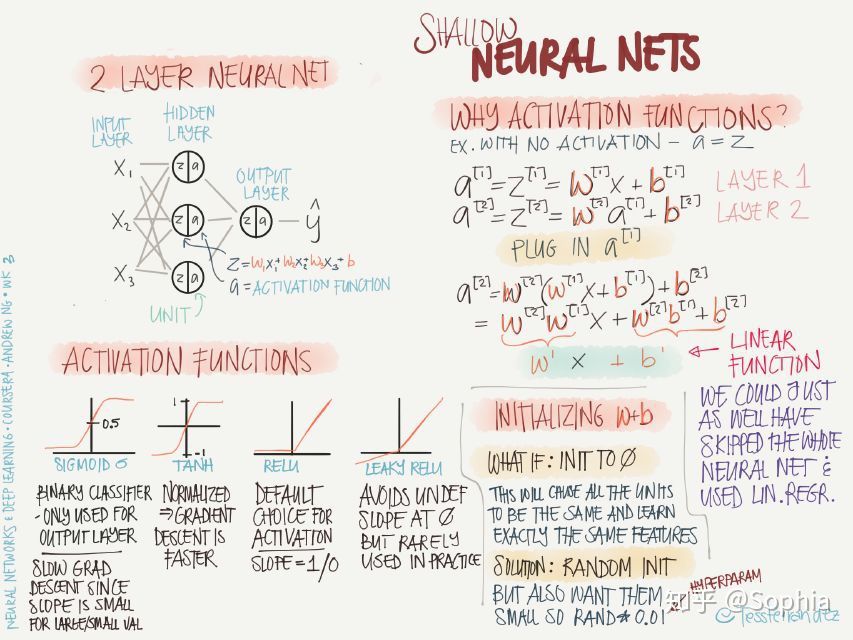 SHALLOW
NEURAL NETS
2 LAYER NEURAL NET
INPUT
LAYER
HIDDEN
LAYER
OUTPUT
LAYER
X₁
X₂
X₃
z a
z a
z a
z a
ŷ
z = w₁x₁ + w₂x₂ + w₃x₃ + b
a = ACTIVATION FUNCTION
UNIT
ACTIVATION FUNCTIONS
0.5
SIGMOID σ
BINARY CLASSIFIER
- ONLY USED FOR
OUTPUT LAYER
SLOW GRAD
DESCENT SINCE
SLOPE IS SMALL
FOR LARGE/SMALL VAL
1
-1
TANH
NORMALIZED
⇒ GRADIENT
DESCENT IS
FASTER
RELU
DEFAULT
CHOICE FOR
ACTIVATION
SLOPE = 1/0
LEAKY RELU
AVOIDS UNDEF
SLOPE AT 0
BUT RARELY
USED IN PRACTICE
WHY ACTIVATION FUNCTIONS?
EX. WITH NO ACTIVATION - a = z
a[1] = z[1] = w[1]x + b[1] LAYER 1
a[2] = z[2] = w[2]a[1] + b[2] LAYER 2
PLUG IN a[1]
a[2] = w[2](w[1]x + b[1]) + b[2]
= w[2]w[1]x + w[2]b[1] + b[2]
w' x + b'
LINEAR
FUNCTION
WE COULD JUST
AS WELL HAVE
SKIPPED THE WHOLE
NEURAL NET &
USED LIN. REGR.
INITIALIZING w+b
WHAT IF: INIT TO 0
THIS WILL CAUSE ALL THE UNITS
TO BE THE SAME AND LEARN
EXACTLY THE SAME FEATURES
SOLUTION: RANDOM INIT
BUT ALSO WANT THEM
SMALL SO RAND * 0.01
HYPERPARAM
知乎 @Sophia
© Tessferrandez
NEURAL NETWORKS & DEEP LEARNING • COURSERA • ANDREW NG • WK 3